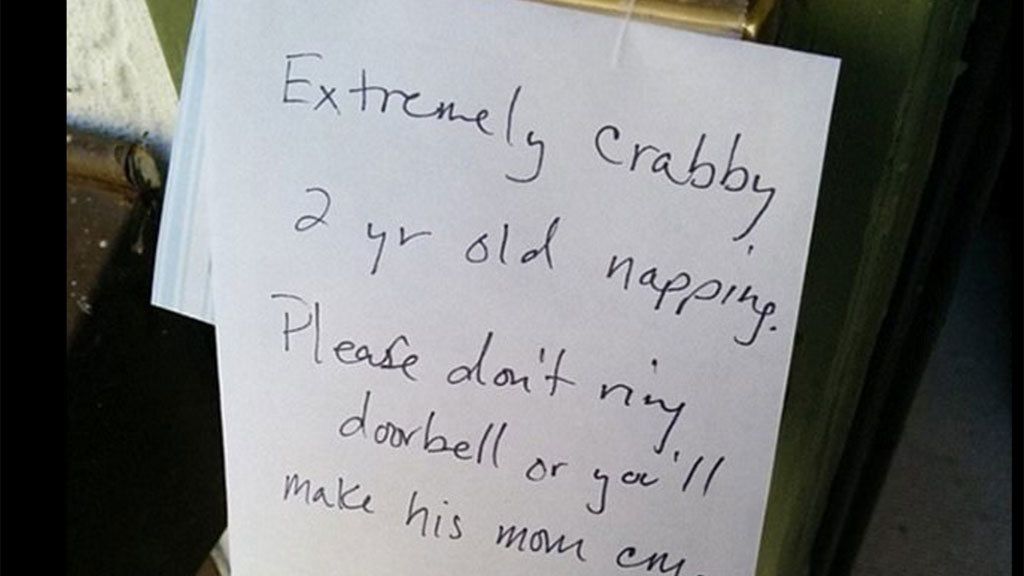 Extremely crabby
2 yr old napping.
Please don't ring
doorbell or you'll
make his mom